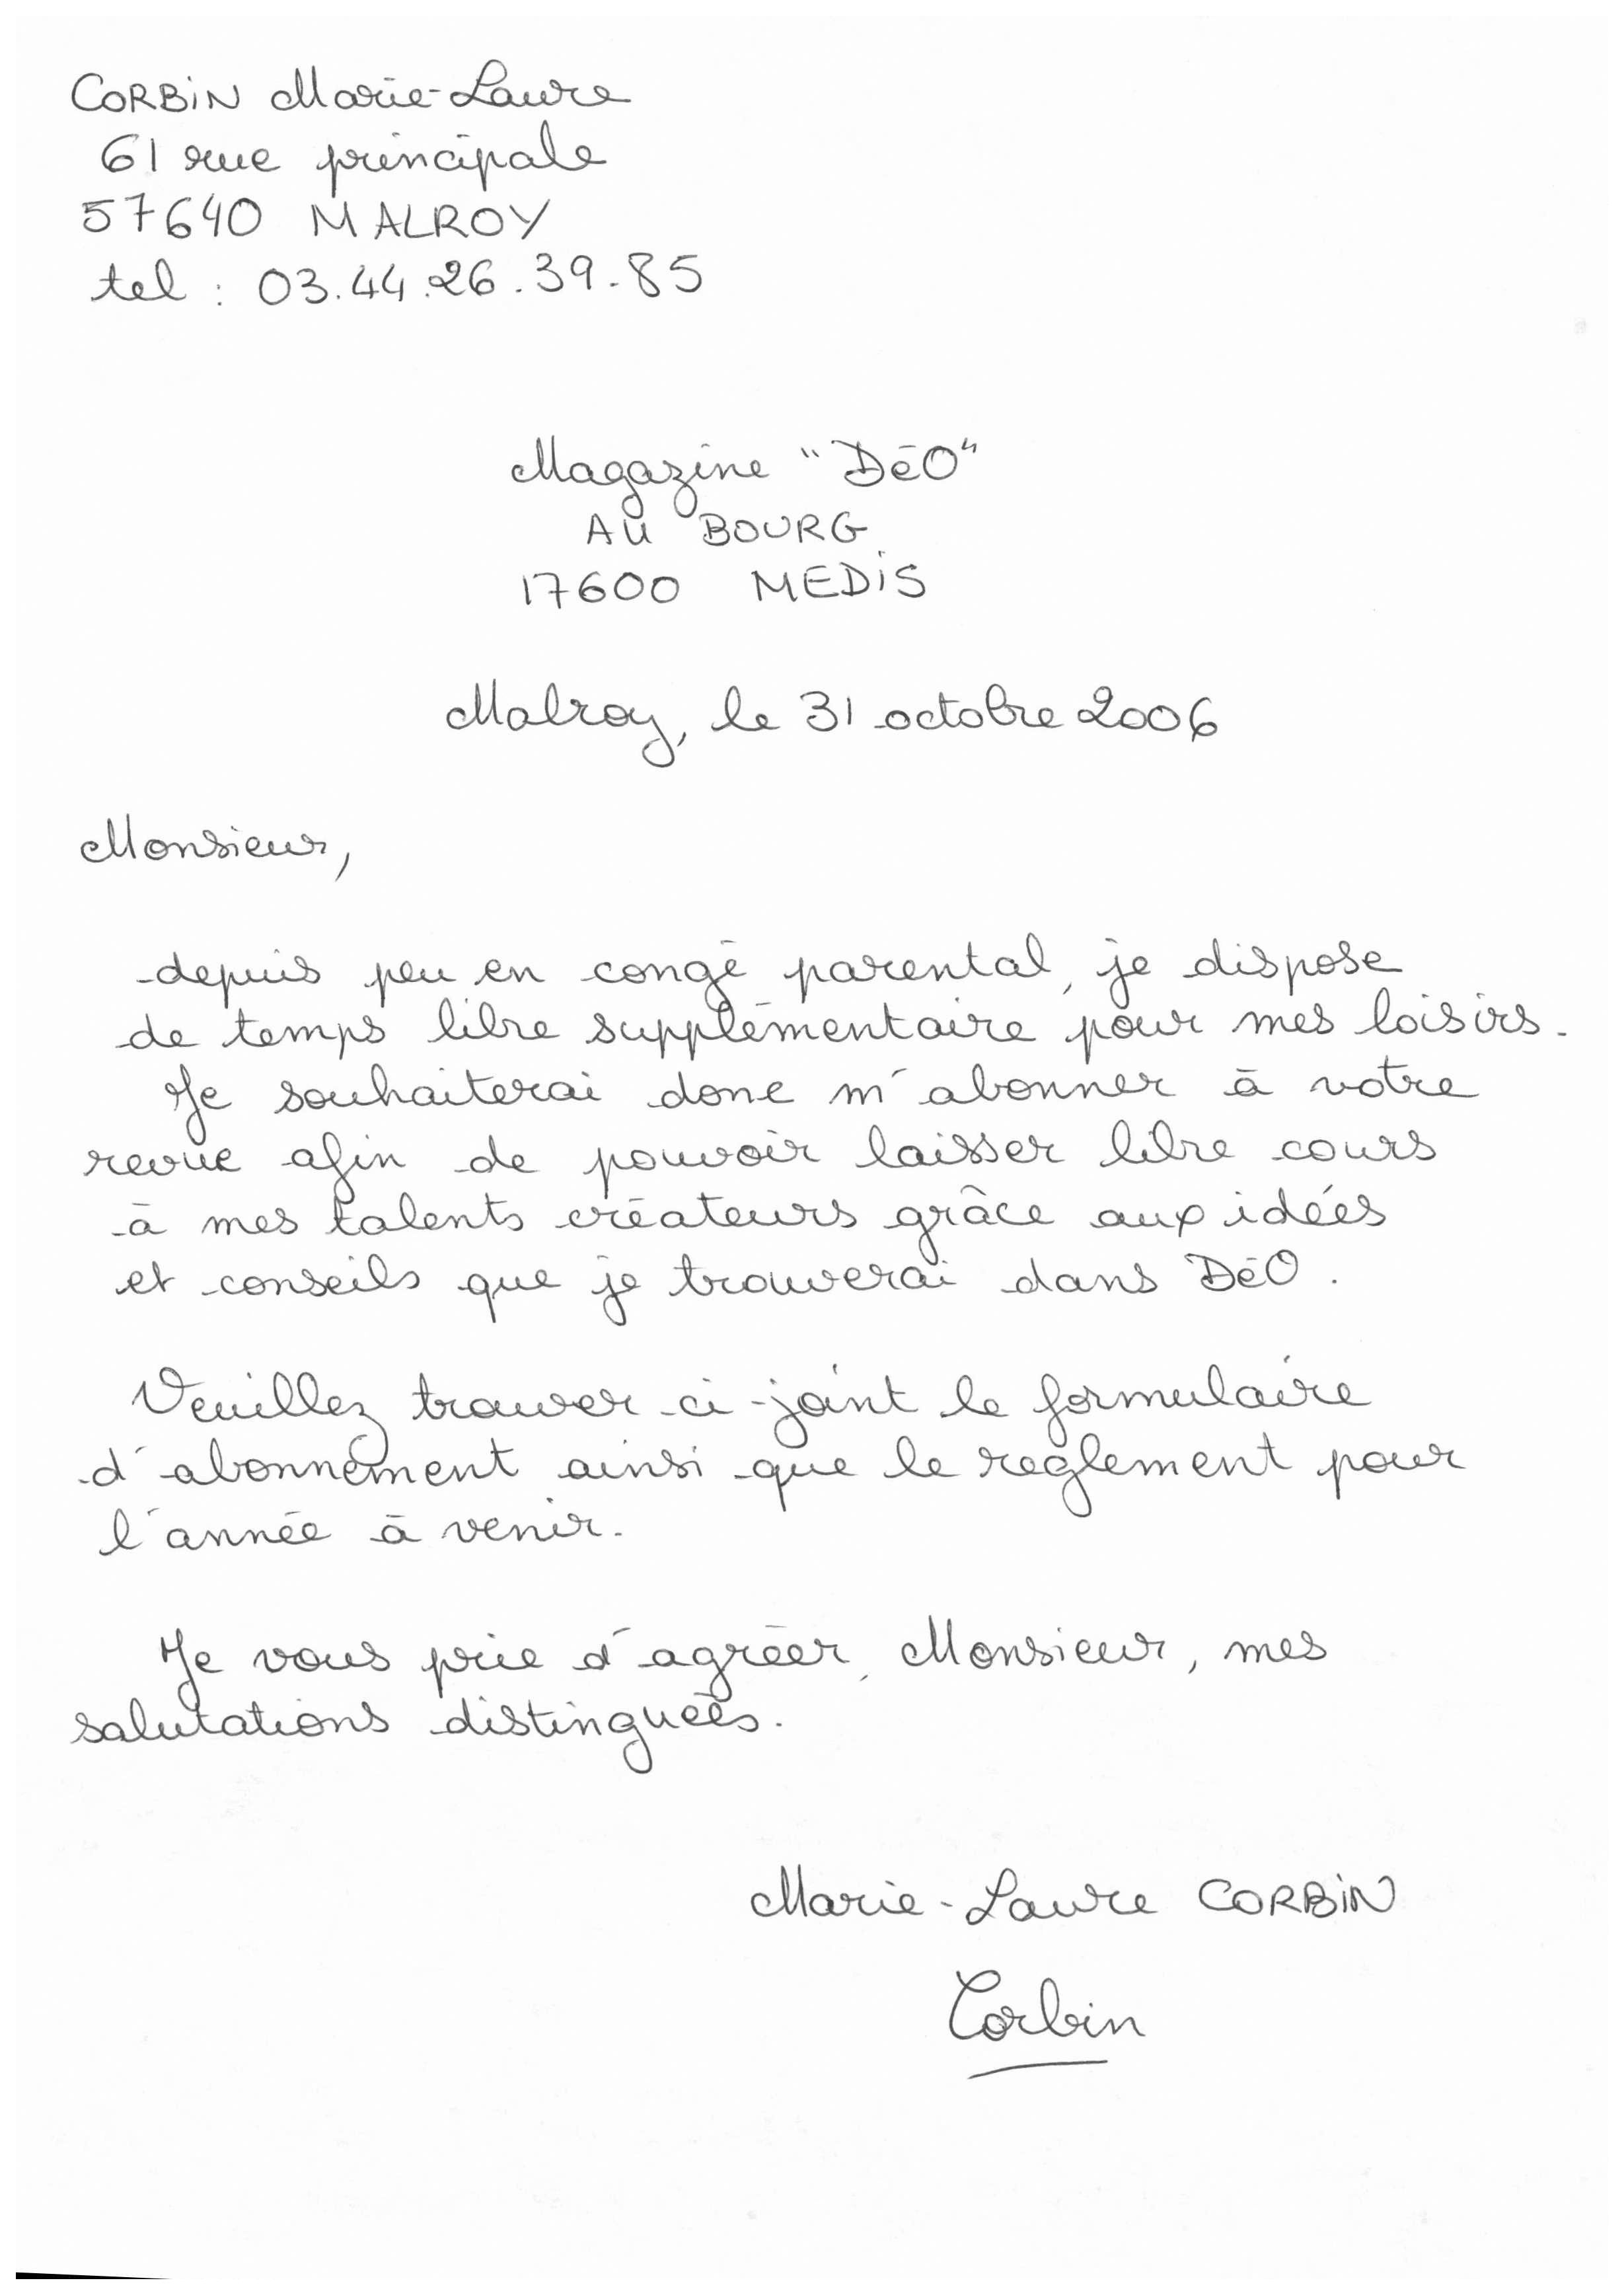 CORBIN Marie-Laure
61 rue principale
57640 MALROY
tel : 03.44.26.39.85
Magazine "DéO"
AU BOURG
17600 MEDIS
Malroy, le 31 octobre 2006
Monsieur,
depuis peu en congé parental, je dispose
de temps libre supplémentaire pour mes loisirs.
Je souhaiterai donc m'abonner à votre
revue afin de pouvoir laisser libre cours
à mes talents créateurs grâce aux idées
et conseils que je trouverai dans DéO.
Veuillez trouver ci-joint le formulaire
d'abonnement ainsi que le reglement pour
l'année à venir.
Je vous prie d'agréer, Monsieur, mes
salutations distinguées.
Marie-Laure CORBIN
Corbin